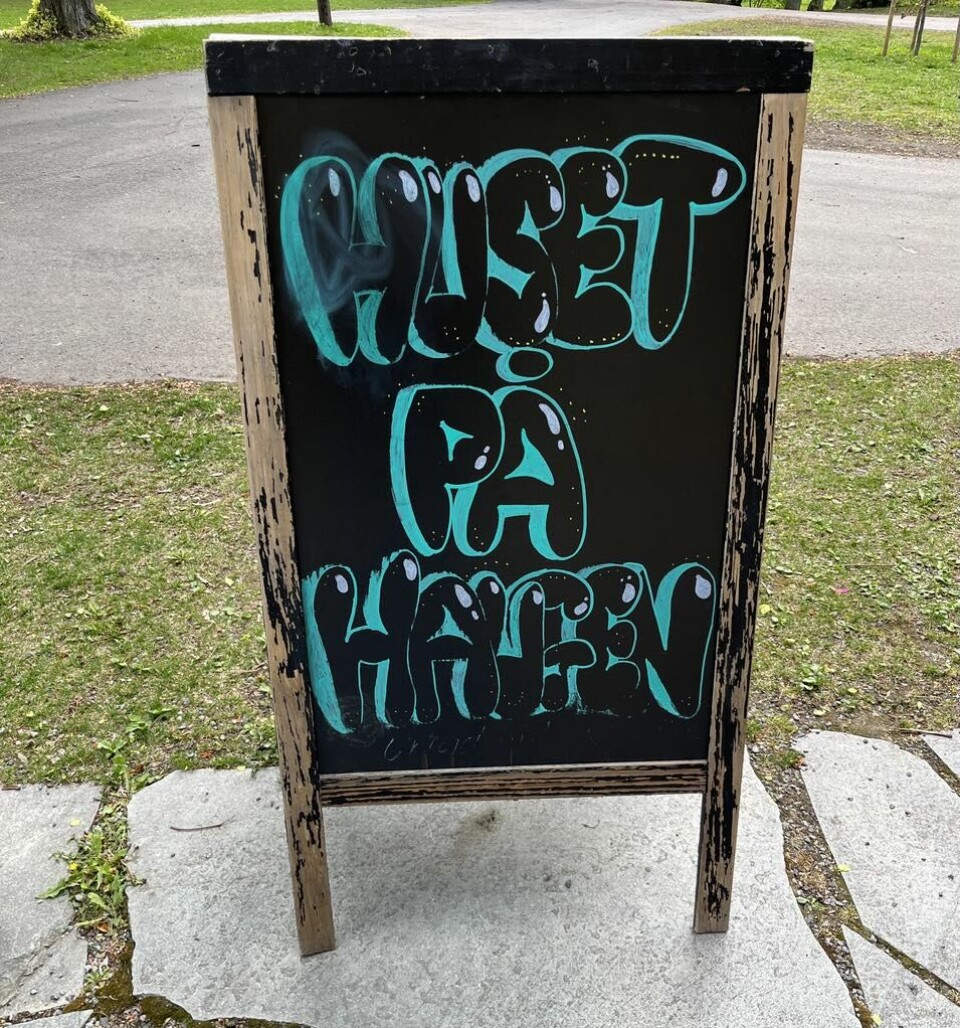 HUSET
PÅ
HAUGEN